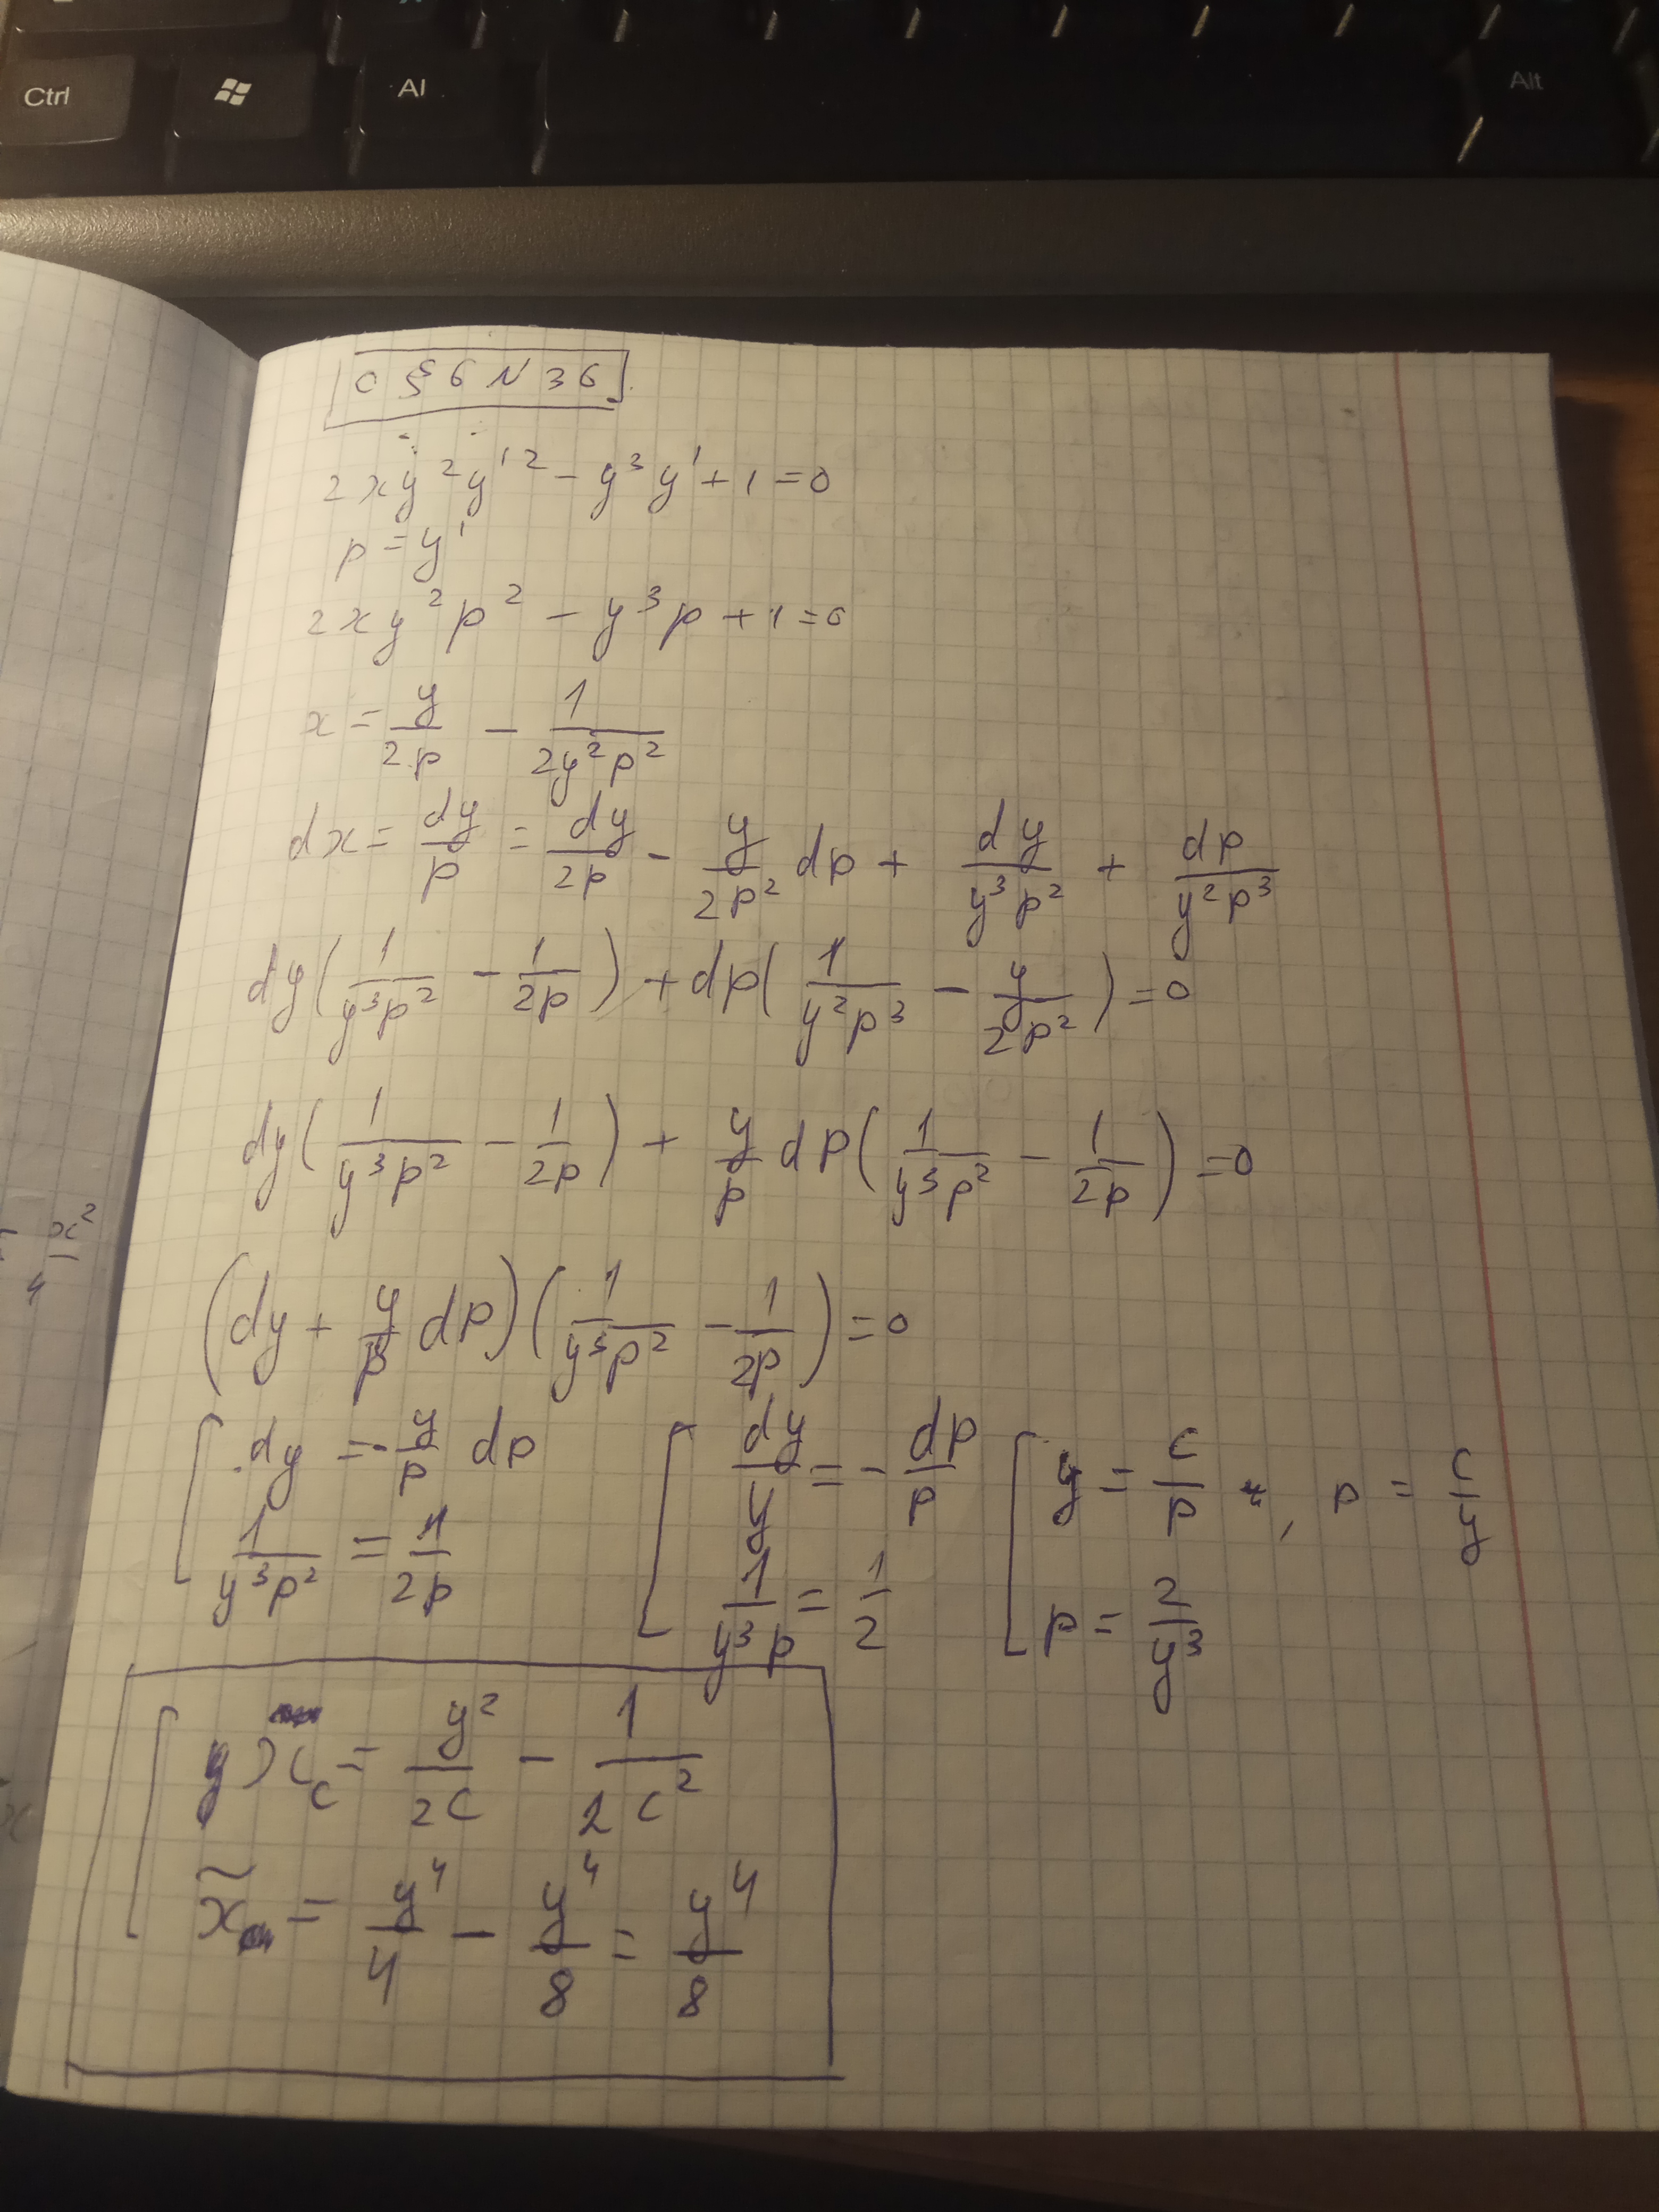 Ctrl
Al
Alt
C §6 N 36
2xy²y'² - y³y' + 1 = 0
p = y'
2xy²p² - y³p + 1 = 0
x = y/2p - 1/2y²p²
dx = dy/p = dy/2p - y/2p² dp + dy/y³p² + dp/y²p³
dy(1/y³p² - 1/2p) + dp(1/y²p³ - y/2p²) = 0
dy(1/y³p² - 1/2p) + y/p dp(1/y³p² - 1/2p) = 0
(dy + y/p dp)(1/y³p² - 1/2p) = 0
[ dy = - y/p dp [ dy/y = - dp/p [ y = c/p , p = c/y
1/y³p² = 1/2p 1/y³p = 1/2 p = 2/y³
[ x_c = y²/2C - 1/2C²
x̃ = y⁴/4 - y⁴/8 = y⁴/8
x²/4